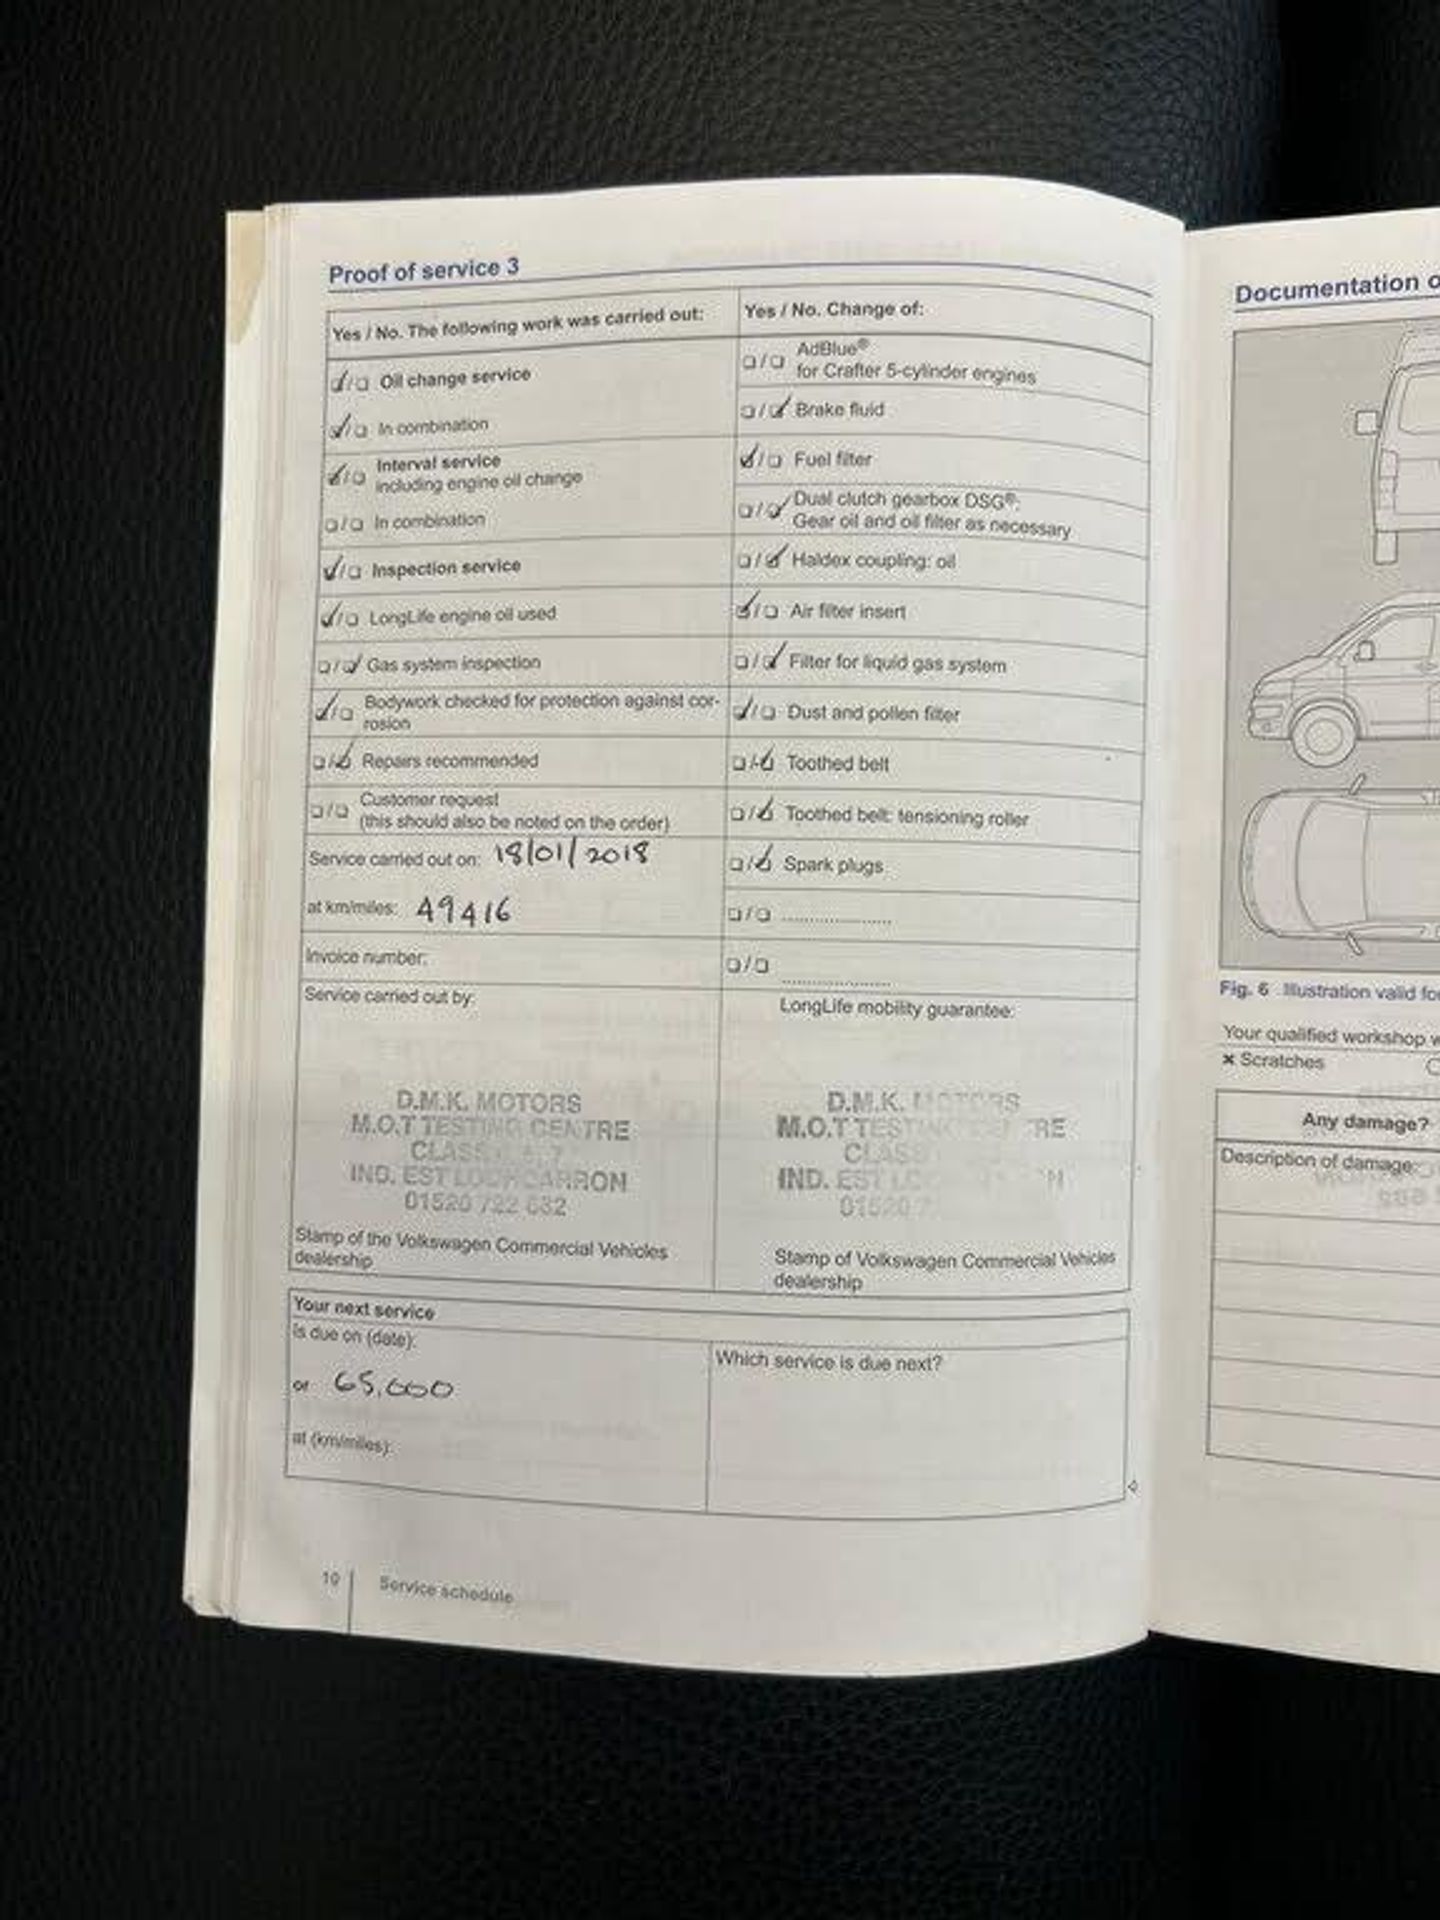 Proof of service 3
Yes / No. The following work was carried out:
Oil change service
In combination
Interval service
including engine oil change
In combination
Inspection service
LongLife engine oil used
Gas system inspection
Bodywork checked for protection against cor-
rosion
Repairs recommended
Customer request
(this should also be noted on the order)
Service carried out on: 18/01/2018
at km/miles: 49416
Invoice number:
Service carried out by:
D.M.K. MOTORS
M.O.T TESTING CENTRE
CLASS
IND. EST LOCHCARRON
01520 722
Stamp of the Volkswagen Commercial Vehicles
dealership
Yes / No. Change of:
AdBlue®
for Crafter 5-cylinder engines
Brake fluid
Fuel filter
Dual clutch gearbox DSG®:
Gear oil and oil filter as necessary
Haldex coupling: oil
Air filter insert
Filter for liquid gas system
Dust and pollen filter
Toothed belt
Toothed belt: tensioning roller
Spark plugs
LongLife mobility guarantee:
D.M.K. MOTORS
M.O.T TESTING CENTRE
CLASS
IND. EST
Stamp of Volkswagen Commercial Vehicles
dealership
Your next service
is due on (date):
or 65,000
at (km/miles):
Which service is due next?
10 Service schedule
Documentation o
Fig. 6 Illustration valid for
Your qualified workshop w
× Scratches
Any damage?
Description of damage: